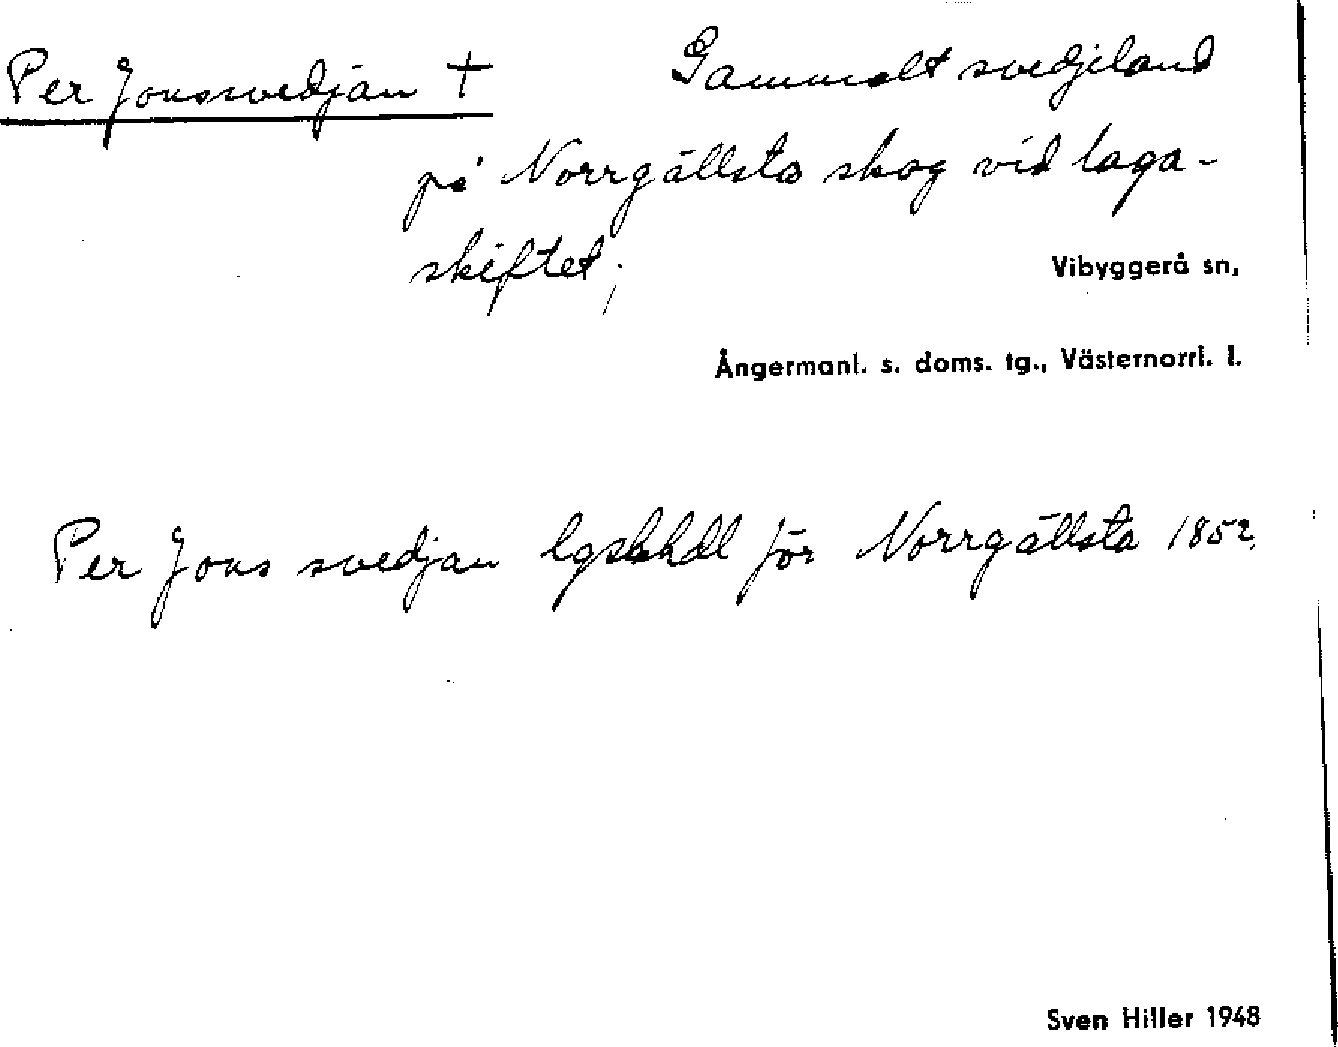 Per Jonssvedjan † Gammalt svedjeland
på Norrgällsta skog vid laga-
skiftet;
Vibyggerå sn,
Ångermanl. s. doms. tg., Västernorrl. l.
Per Jons svedjan lgskhdl för Norrgällsta 1852.
Sven Hiller 1948